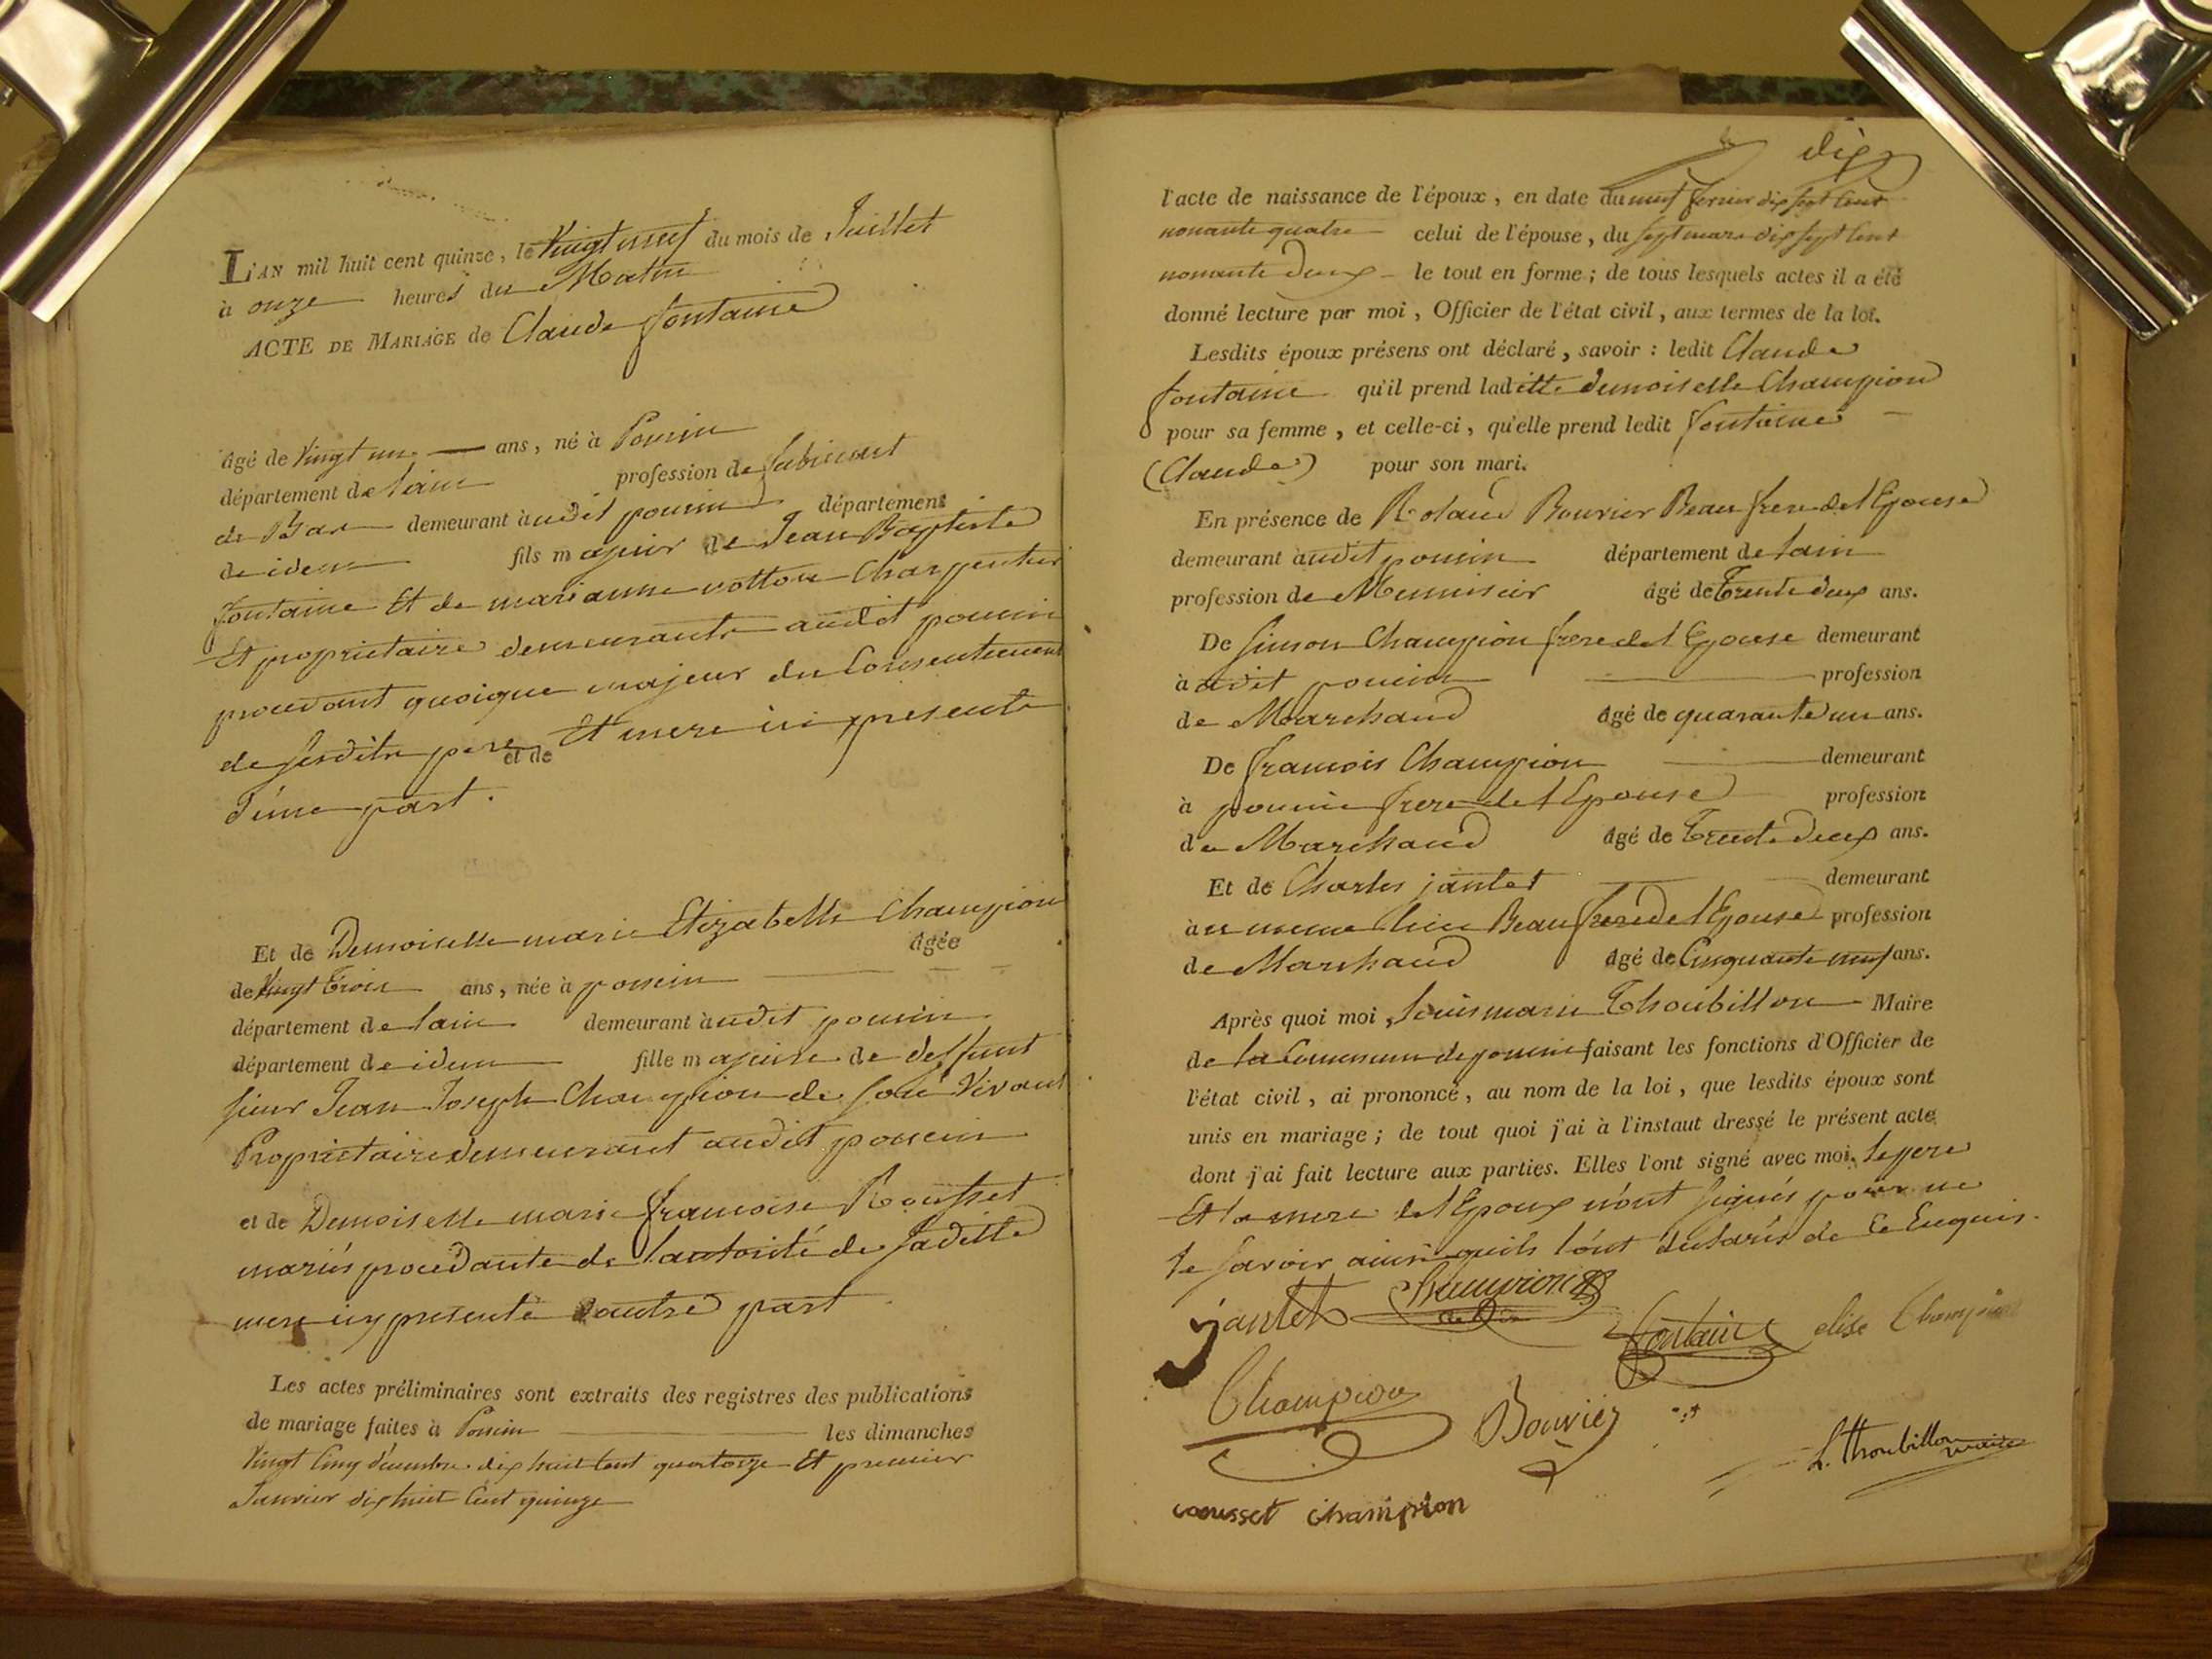 L'AN mil huit cent quinze, le Vingt neuf du mois de Juillet
à onze heures du Matin
ACTE DE MARIAGE de Claude fontaine
âgé de Vingt un ans, né à Poncin
département de lain profession de fabricant
de Bas demeurant àudit poncin département
de idem fils majeur de Jean Baptiste
fontaine Et de marianne Charpentier
Et proprietaire demeurants audit poncin
procedant quoique majeur du Consentement
de sesdits pere et de Et mere ici presents
d'une part.
Et de Demoiselle marie Elizabelle Champion âgée
de Vingt Trois ans, née à poncin
département de lain demeurant àudit poncin
département de idem fille majeure de deffunt
sieur Jean Joseph Champion de son Vivant
Proprietaire demeurant audit poncin
et de Demoiselle marie francoise Rousset
mariés procedante de lautorité de saditte
mere icy presente dautre part
Les actes préliminaires sont extraits des registres des publications
de mariage faites à Poncin les dimanches
Vingt Cinq décembre dix huit Cent quatorze Et premier
Janvier dix huit Cent quinze
dix
l'acte de naissance de l'époux, en date du neuf fevrier dix sept Cent
nonante quatre celui de l'épouse, du sept mars dix sept Cent
nonante Deux le tout en forme; de tous lesquels actes il a été
donné lecture par moi, Officier de l'état civil, aux termes de la loi.
Lesdits époux présens ont déclaré, savoir : ledit Claude
fontaine qu'il prend laditte demoiselle Champion
pour sa femme, et celle-ci, qu'elle prend ledit fontaine
(Claude) pour son mari.
En présence de Roland Bouvier Beau frere de l'Epouse
demeurant àudit poncin département de lain
profession de Menuisier âgé de Trente deux ans.
De Simon Champion frere de l'Epouse demeurant
à audit poncin profession
de Marchand âgé de quarante un ans.
De francois Champion demeurant
à poncin frere de l'Epouse profession
de Marchand âgé de Trente Deux ans.
Et de Charles jantet demeurant
àu meme lieu Beau frere de l'Epouse profession
de Marchand âgé de Cinquante neuf ans.
Après quoi moi, louis marie Thoubillon Maire
de la Commune de poncin faisant les fonctions d'Officier de
l'état civil, ai prononcé, au nom de la loi, que lesdits époux sont
unis en mariage; de tout quoi j'ai à l'instaut dressé le présent acte
dont j'ai fait lecture aux parties. Elles l'ont signé avec moi. le pere
Et la mere de l'Epoux n'ont signés pour ne
le savoir ainsi quils l'ont declarés de Ce Enquis.
jantet Champion
fontaine elise Champion
Champion Bouvier
L. Thoubillon maire
rousset champion